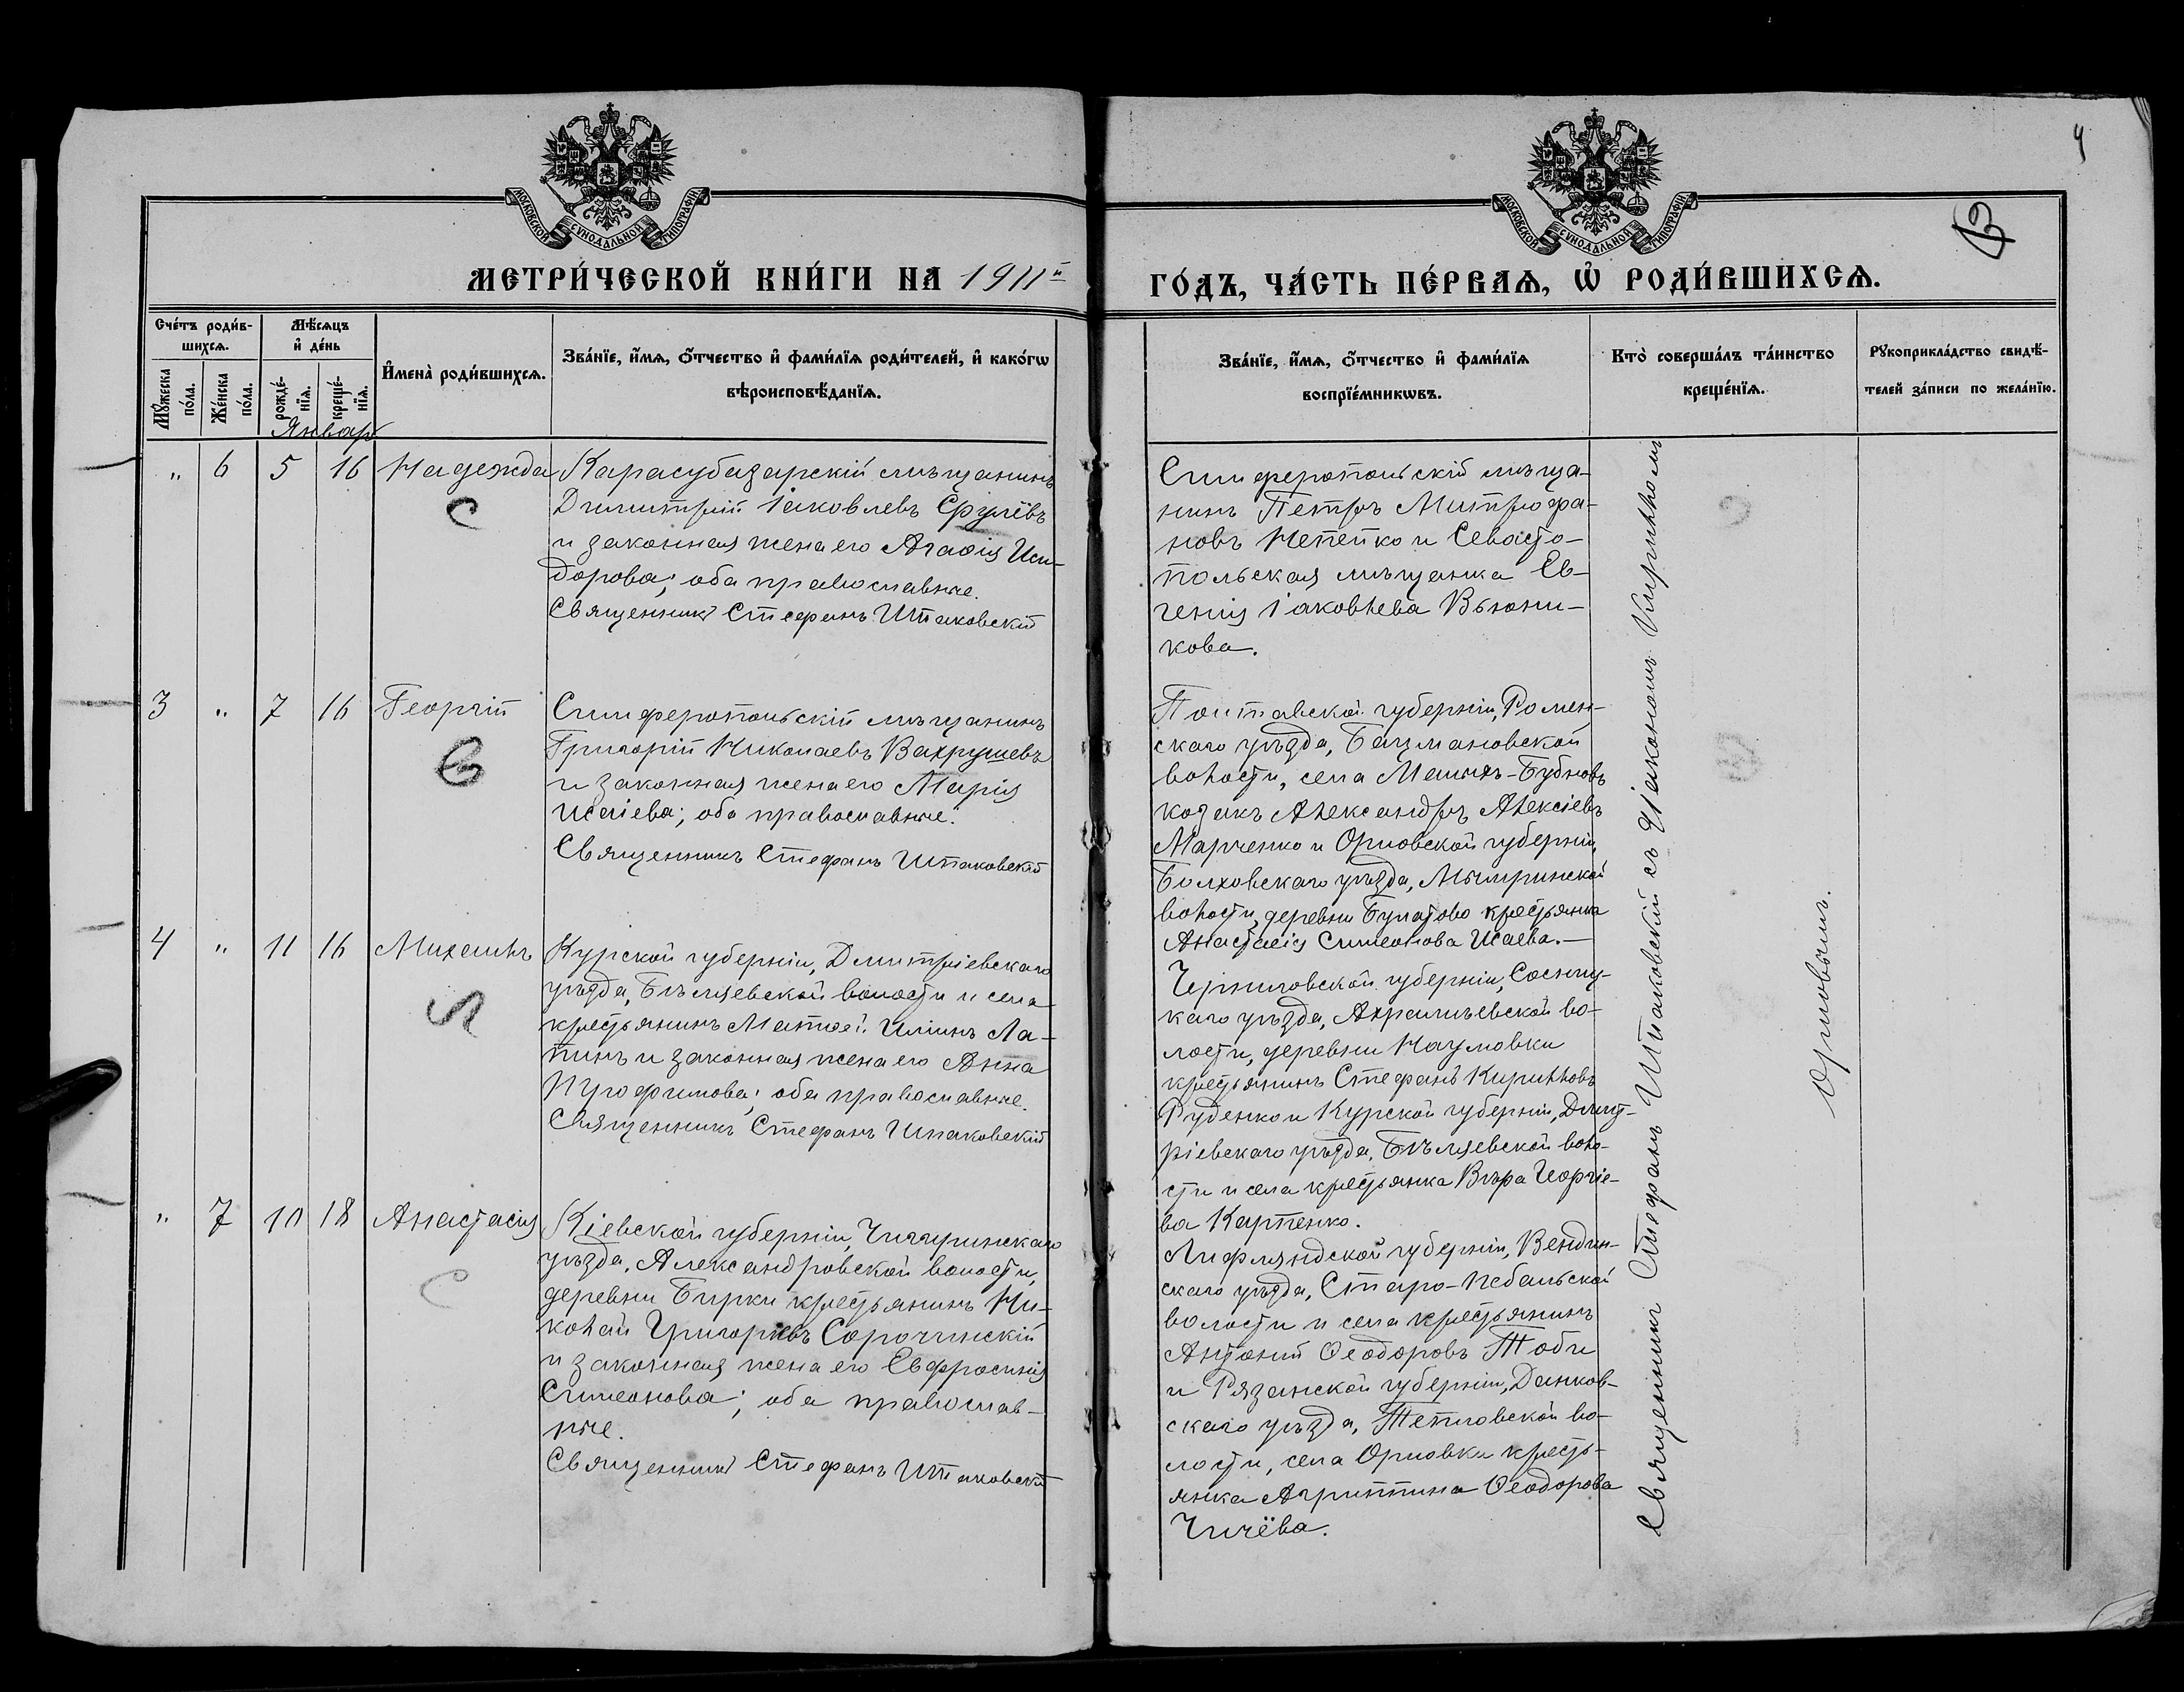 4
13
МОСКОВСКОЙ СѴНОДАЛЬНОЙ ТИПОГРАФІИ
МОСКОВСКОЙ СѴНОДАЛЬНОЙ ТИПОГРАФІИ
МЕТРИ́ЧЕСКОЙ КНИ́ГИ НА 1911й
ГО́ДЪ, ЧА́СТЬ ПЕ́РВАѦ, Ѽ РОДИ́ВШИХСѦ.
Сче́тъ роди́в-
шихсѧ.
Мꙋ́жеска по́ла.
Же́нска по́ла.
Мѣ́сѧцъ
и҆ де́нь
рожде́-
нїѧ.
креще́-
нїѧ.
И҆мена̀ роди́вшихсѧ.
Зва́нїе, и҆́мѧ, ѻ҆́тчество и҆ фами́лїѧ роди́телей, и҆ како́гѡ
вѣроисповѣ́данїѧ.
Зва́нїе, и҆́мѧ, ѻ҆́тчество и҆ фами́лїѧ
воспрїе́мникѡвъ.
Кто̀ соверша́лъ та́инство
креще́нїѧ.
Рꙋкоприкла́дство свидѣ́-
телей за́писи по жела́нїю.
Январь
" 6 5 16 Надежда
Карасубазарскій мѣщанинъ
Димитрій Іаковлевъ Ерулёвъ
и законная жена его Агаѳія Иси-
дорова; оба православные.
Священникъ Стефанъ Шпаковскій
Симферопольскій мѣща-
нинъ Петръ Митрофа-
новъ Непейко и Севасто-
польская мѣщанка Ев-
генія Іаковлева Вьюни-
кова.
3 " 7 16 Георгій
Симферопольскій мѣщанинъ
Григорій Николаевъ Вахрушевъ
и законная жена его Марія
Исаіева; оба православные.
Священникъ Стефанъ Шпаковскій
Полтавской губерніи, Ромен-
скаго уѣзда, Бацмановской
волости, села Малыхъ-Бубновъ
козакъ Александръ Алексіевъ
Марченко и Орловской губерніи,
Болховскаго уѣзда, Мымринской
волости, деревни Булатово крестьянка
Анастасія Симеонова Исаева.—
4 " 11 16 Михаилъ
Курской губерніи, Дмитріевскаго
уѣзда, Бѣляевской волости и села
крестьянинъ Матѳей Иліинъ Ла-
пинъ и законная жена его Анна
Трофимова; оба православные.
Священникъ Стефанъ Шпаковскій
Черниговской губерніи, Сосниц-
каго уѣзда, Ахрамѣевской во-
лости, деревни Наумовки
крестьянинъ Стефанъ Кирилловъ
Руденко и Курской губерніи, Дмит-
ріевскаго уѣзда, Бѣляевской воло-
сти и села крестьянка Вѣра Георгіе-
ва Карпенко.
" 7 10 18 Анастасія
Кіевской губерніи, Чигиринскаго
уѣзда, Александровской волости,
деревни Бирки крестьянинъ Ни-
колай Григорьевъ Сорочинскій
и законная жена его Евфросинія
Симеонова; оба православ-
ные.
Священникъ Стефанъ Шпаковскій
Лифляндской губерніи, Венден-
скаго уѣзда, Старо-Пебальской
волости и села крестьянинъ
Антоній Ѳеодоровъ Тоби
и Рязанской губерніи, Данков-
скаго уѣзда, Тепловской во-
лости, села Орловки кресть-
янка Агриппина Ѳеодорова
Чичёва.
Священникъ Стефанъ Шпаковскій съ діакономъ Кирилломъ
Орловымъ.